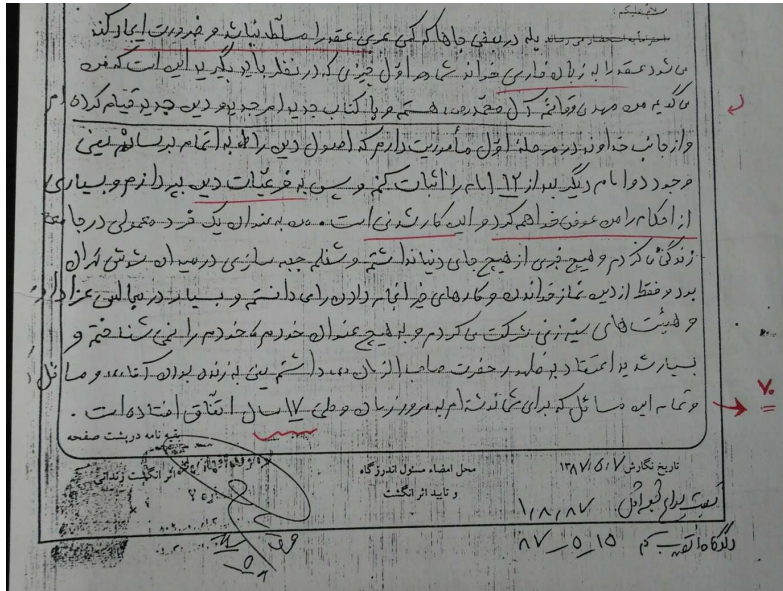 بله در بعضی جاها که کسی عربی عقد را مسلّط نباشد و ضرورت ایجاد کند
می‌شود عقد را به زبان فارسی خواند شما در اوّل چیزی که در نظر باید بگیرید این است که من
می‌گویم من مهدی و قائم آل محمّد هستم و با کتاب جدید امر جدید و دین جدید قیام کرده ام
و از جانب خداوند در مرحله اوّل مأموریت دارم که اصول دین را به اتمام برسانم یعنی
وجود دو امام دیگر بعد از ۱۲ امام را اثبات کنم و سپس به فرعیّات دین بپردازم و بسیاری
از احکام را من عوض خواهم کرد و این کار شدنی است. من به عنوان یک فرد معمولی در جامعه
زندگی می کردم و هیچ خبری از هیچ جای دنیا نداشتم و شغلم جعبه سازی در میدان شوش تهران
بود و فقط از دین نماز خواندن و کارهای خیر انجام دادن را می دانستم و بسیار در مجالس عزاداری
و هیئت های سینه زنی شرکت می کردم و به هیچ عنوان خودم که خودم را نمی شناختم و
بسیار شدید اعتقاد به ظهور حضرت صاحب الزمان داشتم یعنی به زنده بودن آقا و مسائل
و تمام این مسائل که برای شما نوشته ام به مرور زمان و طی ۱۷ سال اتّفاق افتاده است.
۷۰
بقیه نامه در پشت صفحه
تاریخ نگارش ۱۳۸۷/۵/۷
محل امضاء مسئول اندرزگاه
و تایید اثر انگشت
اثر انگشت زندانی
۸۷/۸/۱
۸۷-۵-۱۵